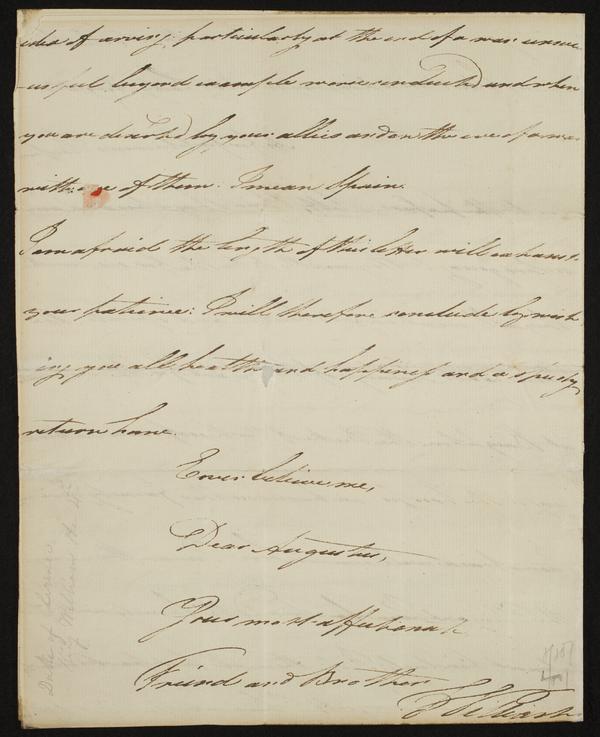 idea of arving, particularly at the end of a war unsuc
cesful beyond example more conducted and when
you are deserted by your allies and on the eve of a war
with one of them. I mean Spain.
I am afraid the length of this letter will exhaust
your patience: I will therefore conclude by wish
ing you all health and happiness and a speedy
return home.
Ever believe me,
Dear Augustus,
Your most affectionate
Friend and Brother
William
Duke of Clarence
King William the 4th